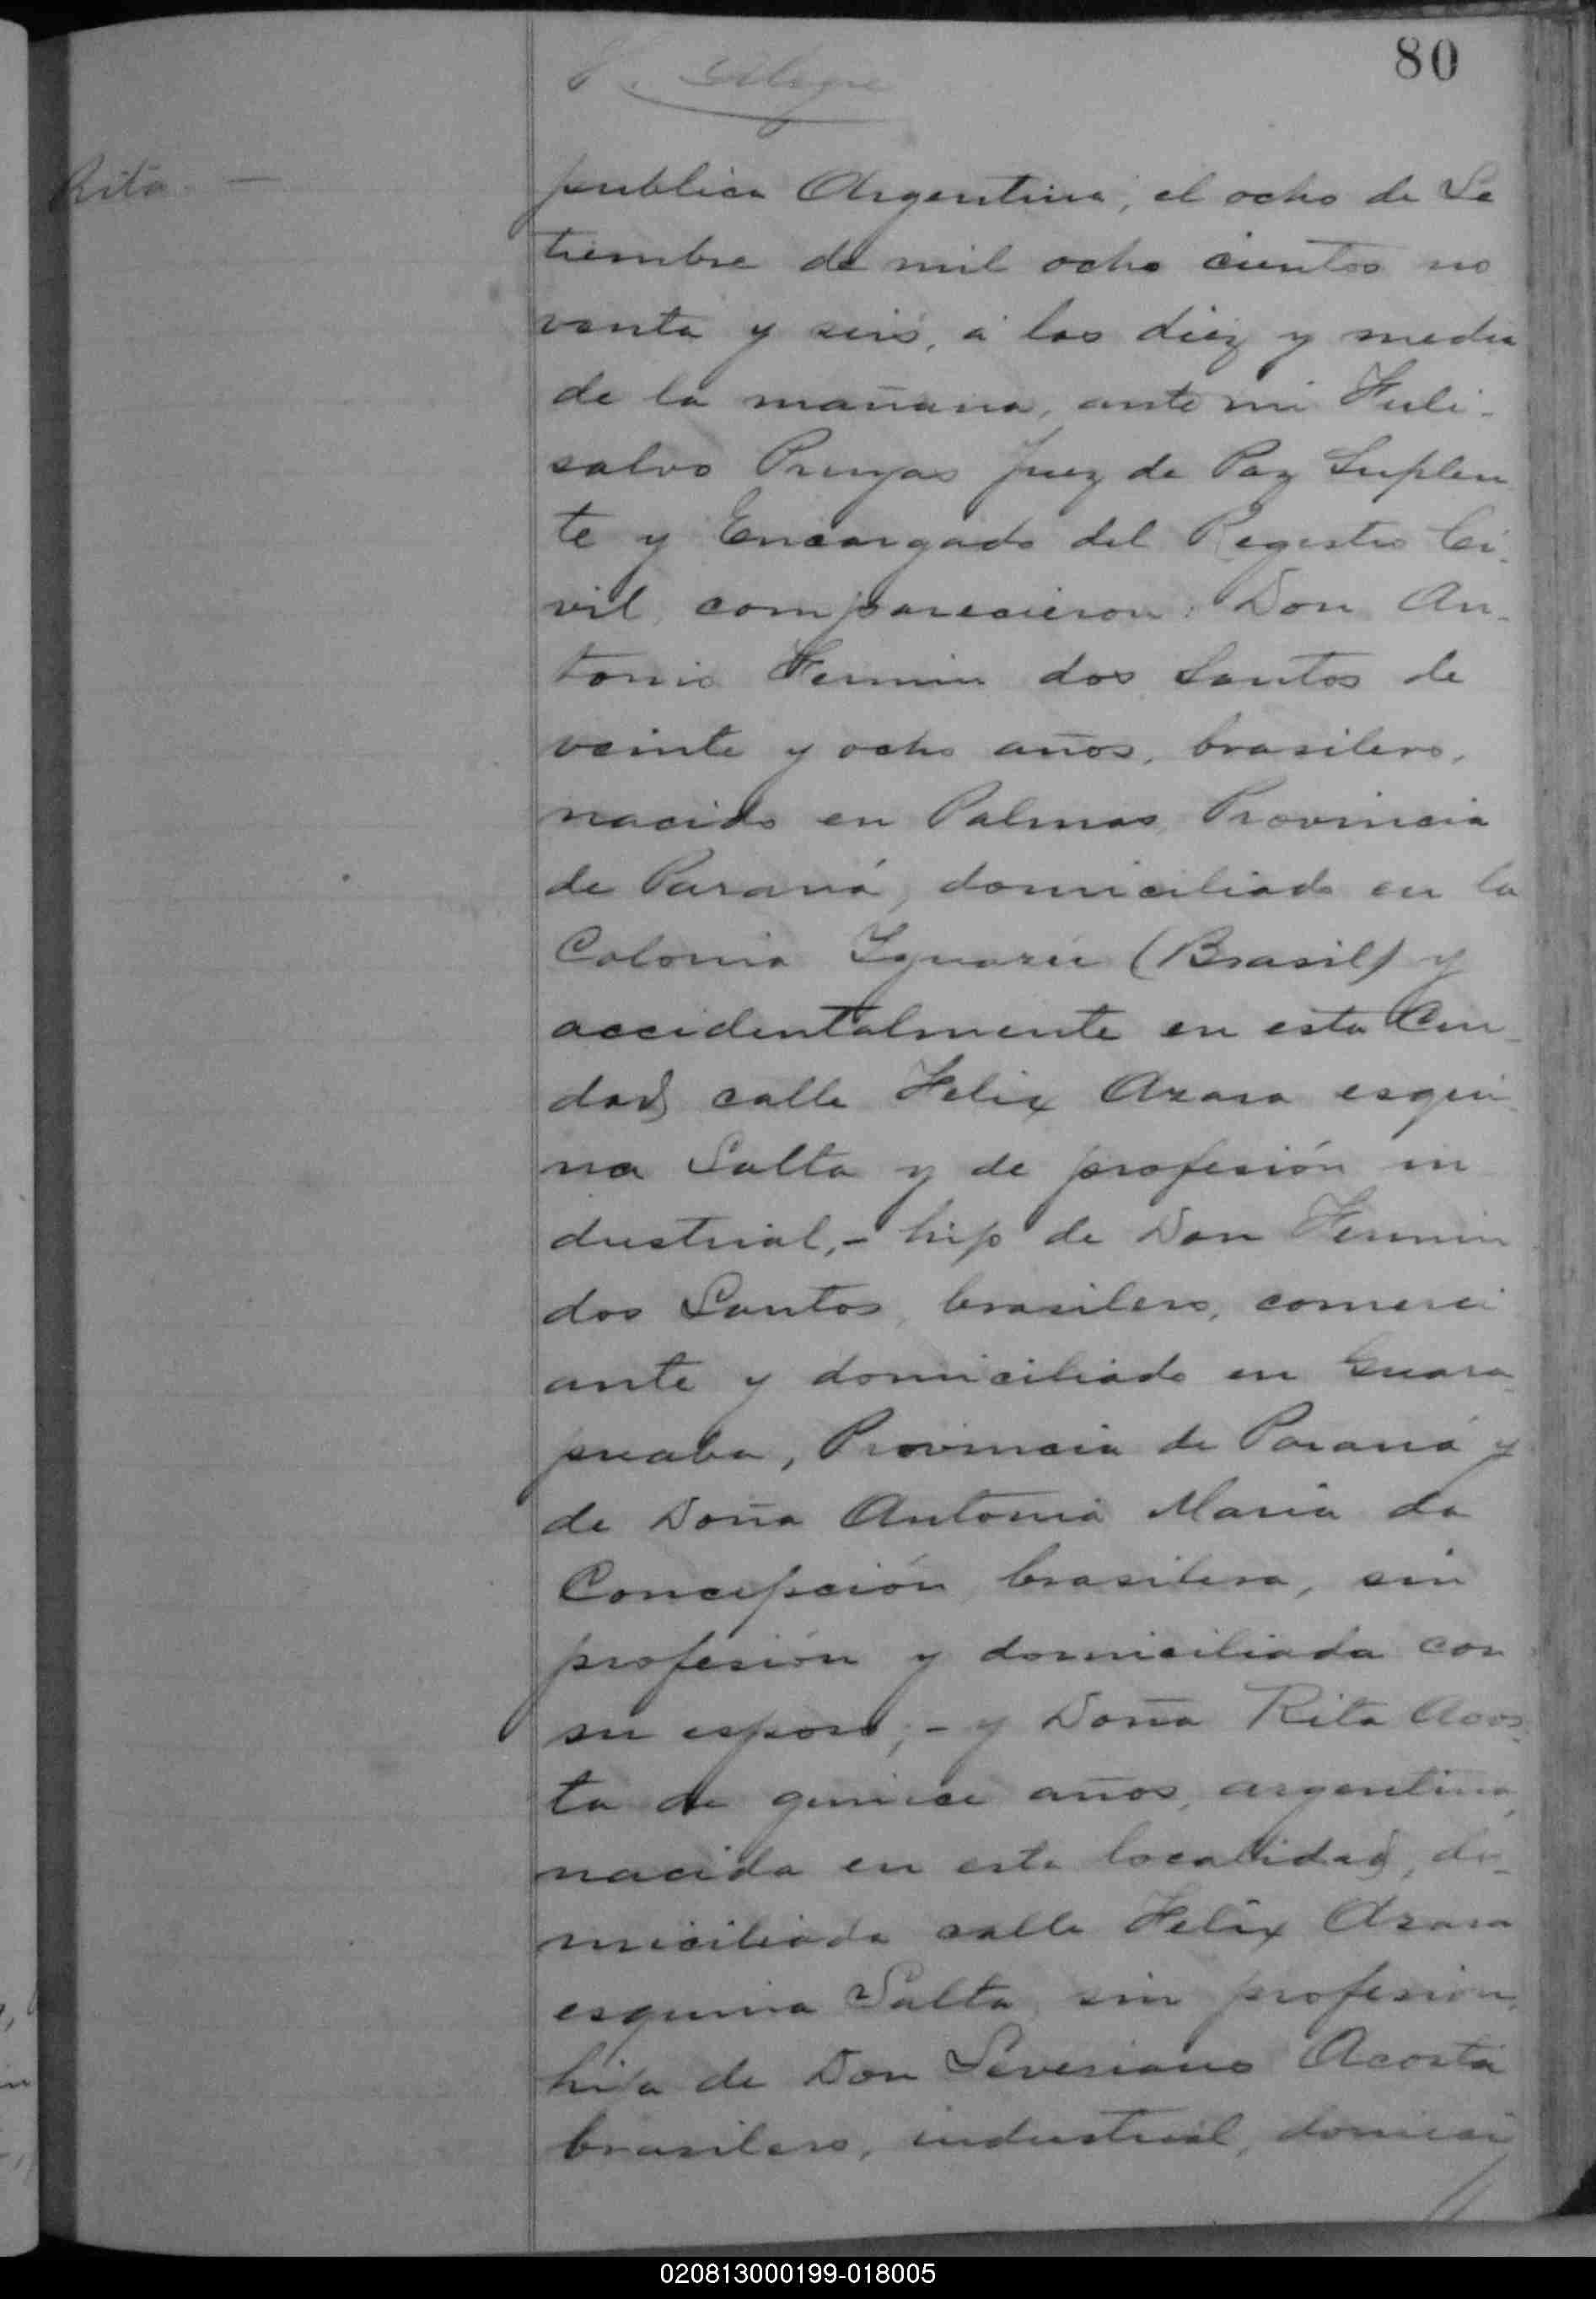 80
Rita —
publica Argentina, el ocho de Se
tiembre de mil ocho cientos no
venta y seis, á las diez y media
de la mañana, ante mi
salvo Juez de Paz Suplen
te y Encargado del Registro Ci-
vil, comparecieron: Don An-
tonio Fermin dos Santos de
veinte y ocho años, brasilero,
nacido en Palmas, Provincia
de Paraná, domiciliado en la
Colonia (Brasil) y
accidentalmente en esta Ciu-
dad, calle Felix Azara esqui-
na Salta y de profesión in
dustrial,- hijo de Don Fermin
dos Santos, brasilero, comerci
ante y domiciliado en Guara
puaba, Provincia de Paraná y
de Doña Antonia Maria da
Concepción, brasilera, sin
profesión y domiciliada con
su esposo;- y Doña Rita Acos-
ta de quince años, argentina,
nacida en esta localidad, do-
miciliada calle Felix Azara
esquina Salta, sin profesion,
hija de Don Severiano Acosta
brasilero, industrial, domici
020813000199-018005